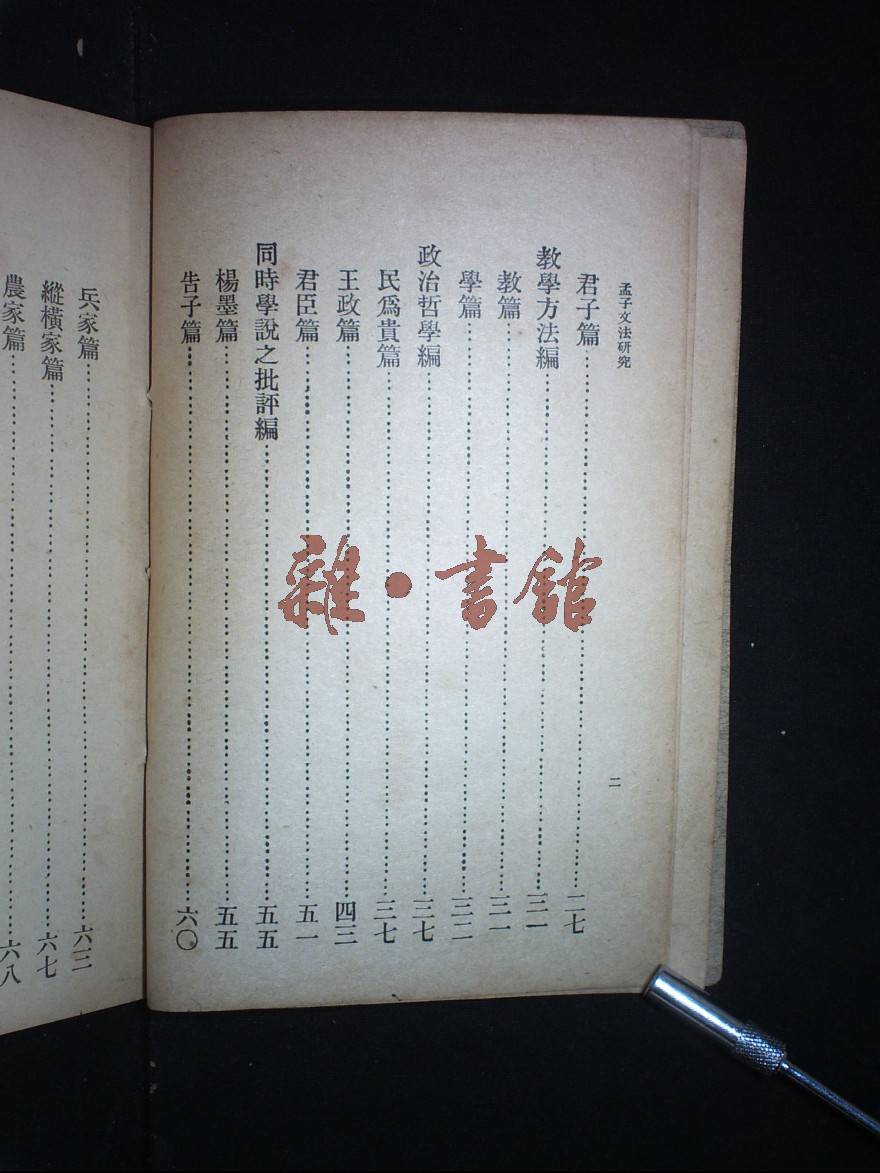 孟子文法研究
二
君子篇……二七
教學方法編……三一
教篇……三一
學篇……三二
政治哲學編……三七
民爲貴篇……三七
王政篇……四三
君臣篇……五一
同時學說之批評編……五五
楊墨篇……五五
告子篇……六〇
兵家篇……六三
縱橫家篇……六七
農家篇……六八
雜·書館